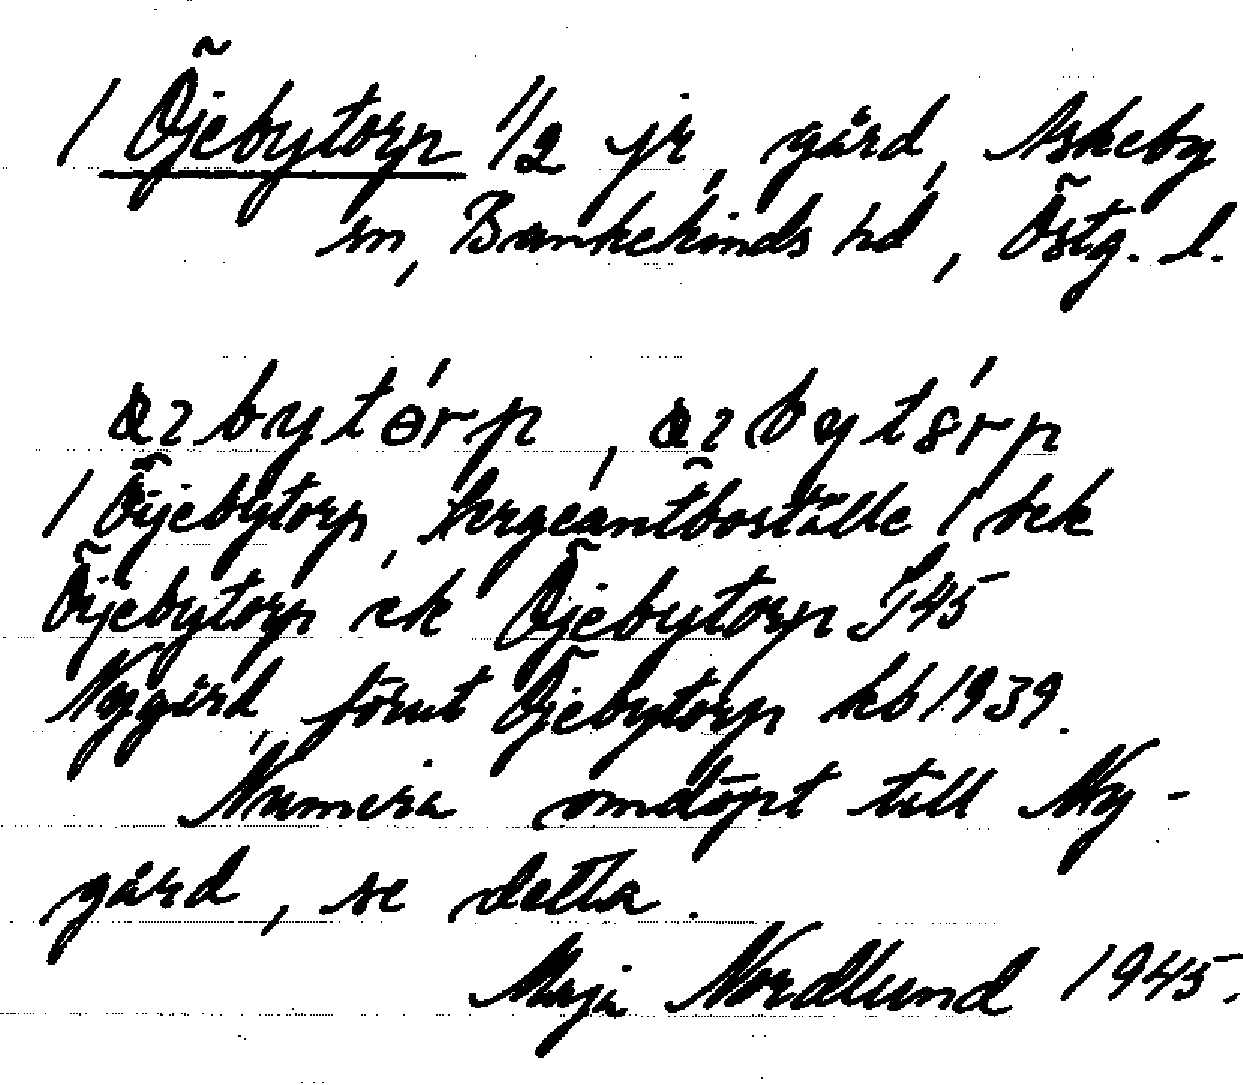 / Öjebytorp 1/2 jr, gård, Askeby
sn, Bankekinds hd, Östg. l.
bytòrp, bytórp
/ Öijebytorp, sergeantboställe / bek
Öijebytorp ek Öjebytorp J45
Nygård, förut Öjebytorp kb 1939.
Numera omdöpt till Ny-
gård, se detta.
Maja Nordlund 1945.